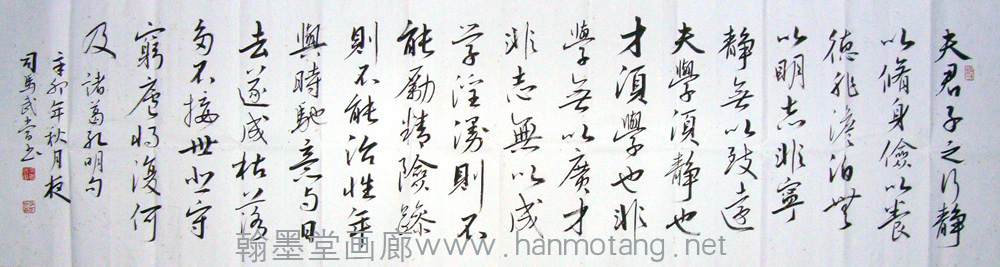 夫君子之行靜
以脩身儉以養
德非澹泊無
以明志非寧
靜無以致遠
夫學須靜也
才須學也非
學無以廣才
非志無以成
学淫漫則不
能勵精險躁
則不能治性年
與時馳意与日
去遂成枯落
多不接世悲守
窮廬将復何
及 諸葛孔明句
辛卯年秋月夜
司馬武当书
翰墨堂画廊www.hanmotang.net